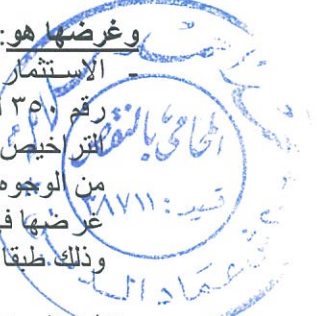 وغرضها هو:
- الاستثمار
رقم ٣٥٠
التراخيص
من الوجوه
غرضها ف
وذلك طبقا
المحامي بالنقض
قيد: ٣٨٧١١